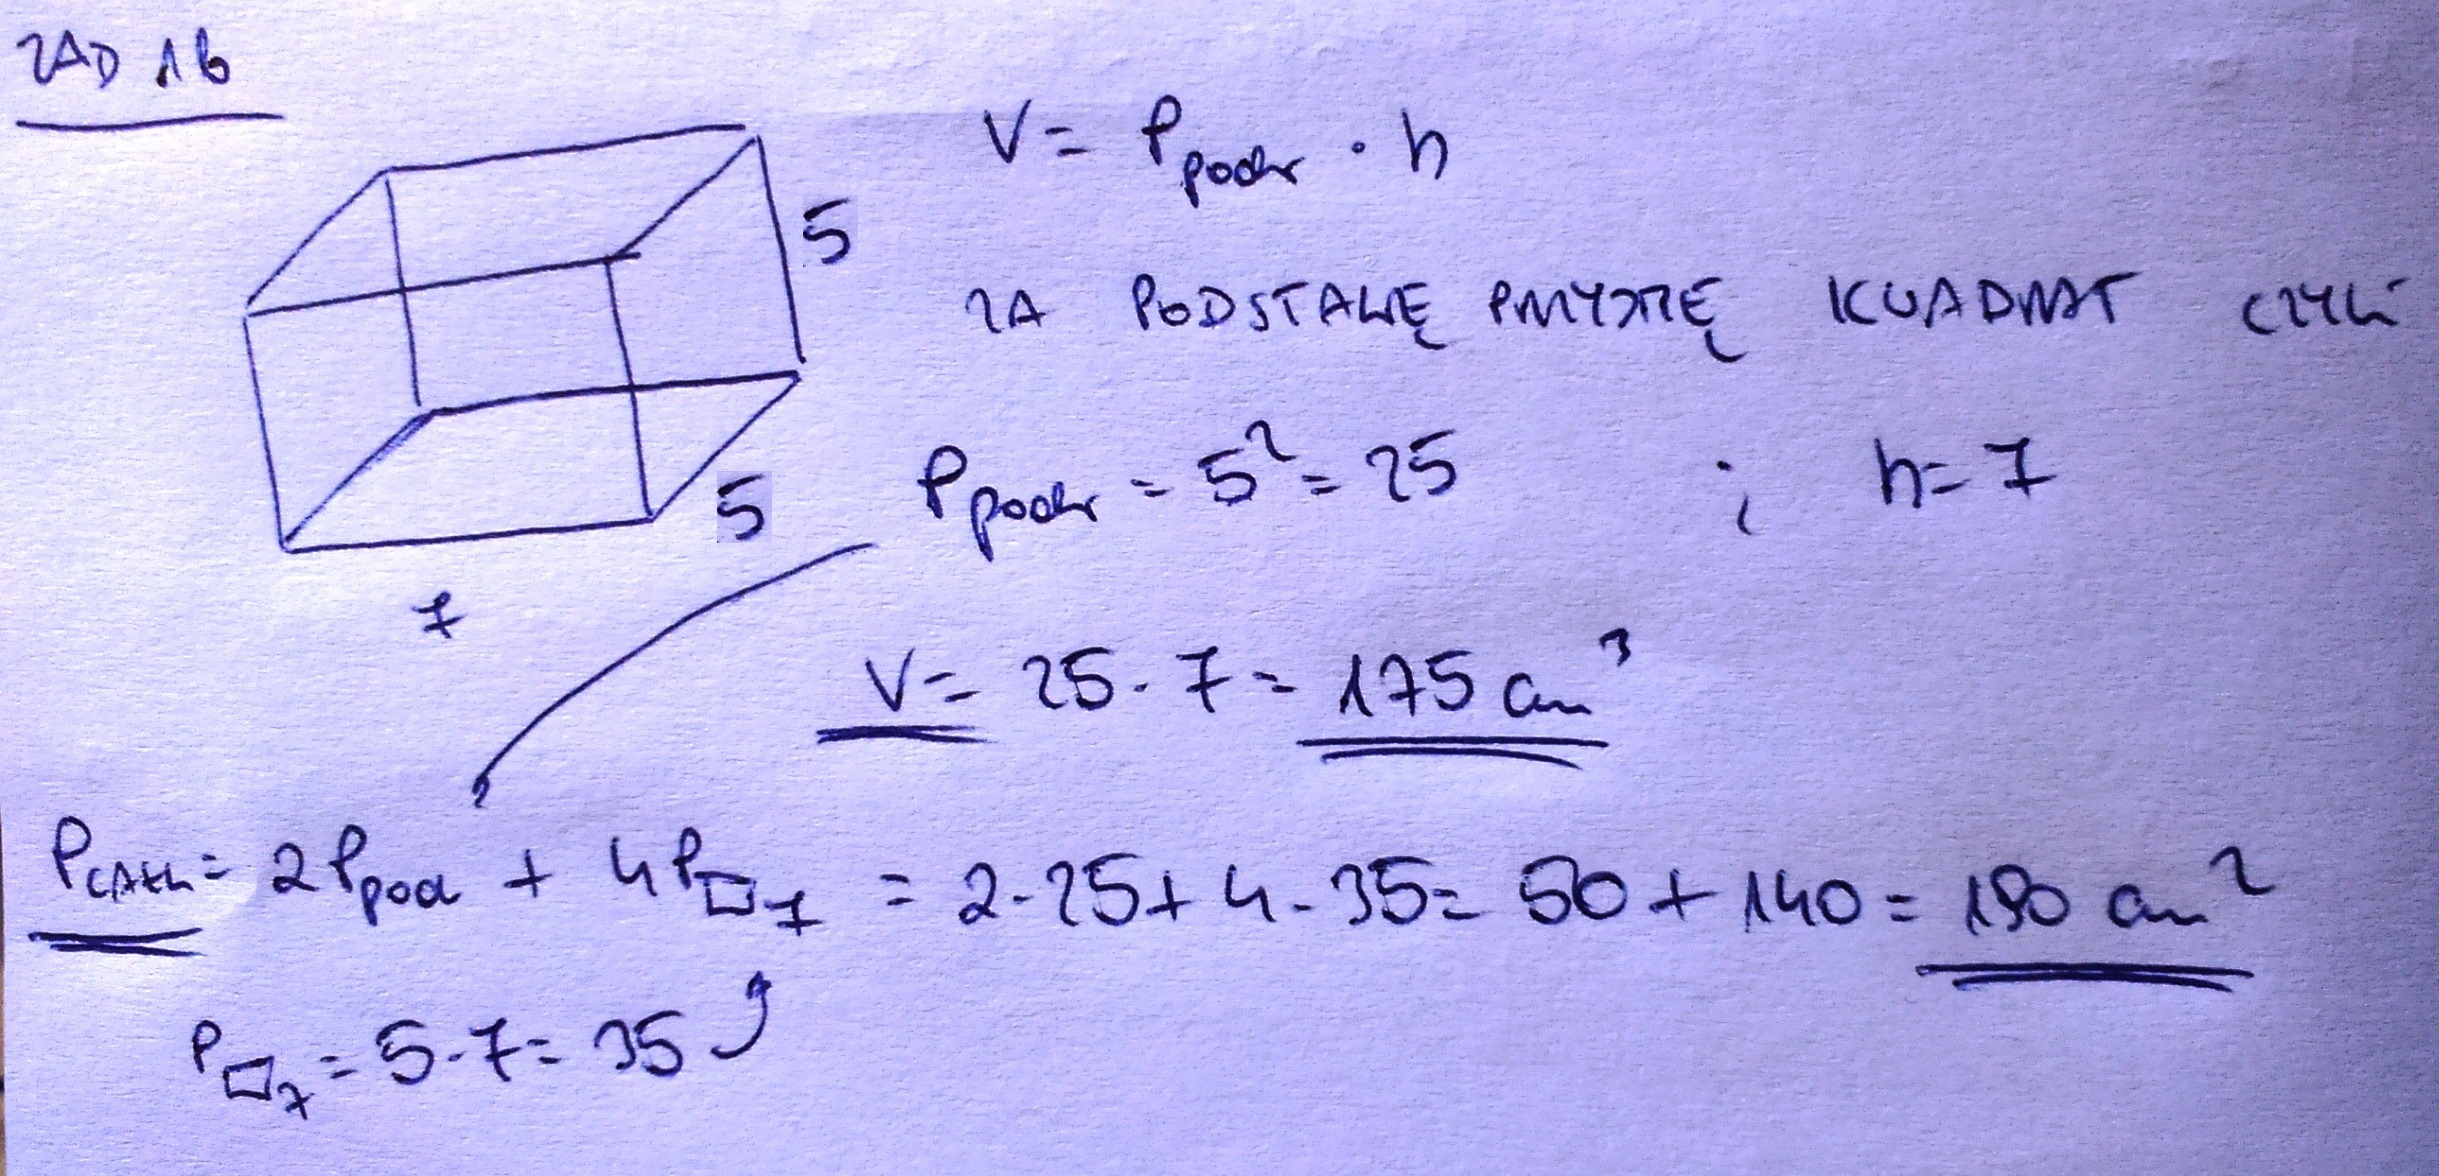 ZAD 1b
V = Ppodst · h
5
ZA PODSTAWĘ PRZYJMĘ KWADRAT CZYLI
Ppodst = 5² = 25 ; h = 7
5
7
V = 25 · 7 = 175 cm³
PCAŁK = 2Ppod + 4P▭7 = 2 · 25 + 4 · 35 = 50 + 140 = 190 cm²
P▭7 = 5 · 7 = 35